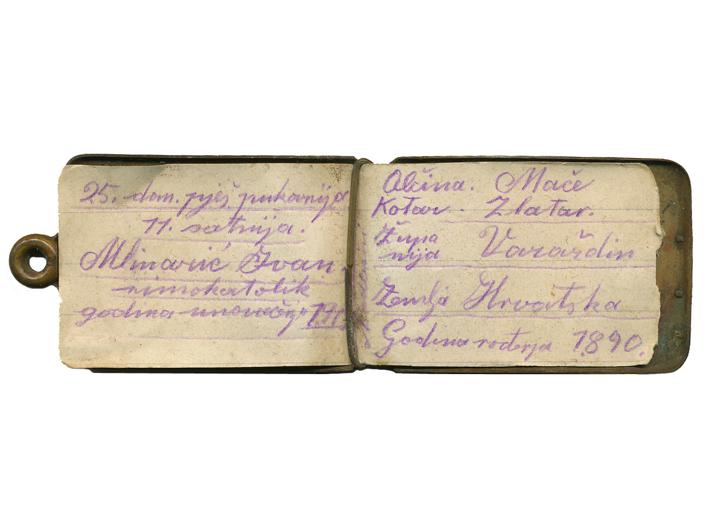 25. dom. pješ. pukovnija
11. satnija.
Mlinarić Ivan
rimokatolik
godina unovačen
Občina. Mače
Kotar. Zlatar.
Župa
nija Varaždin
Zemlja Hrvatska
Godina rođenja 1890.